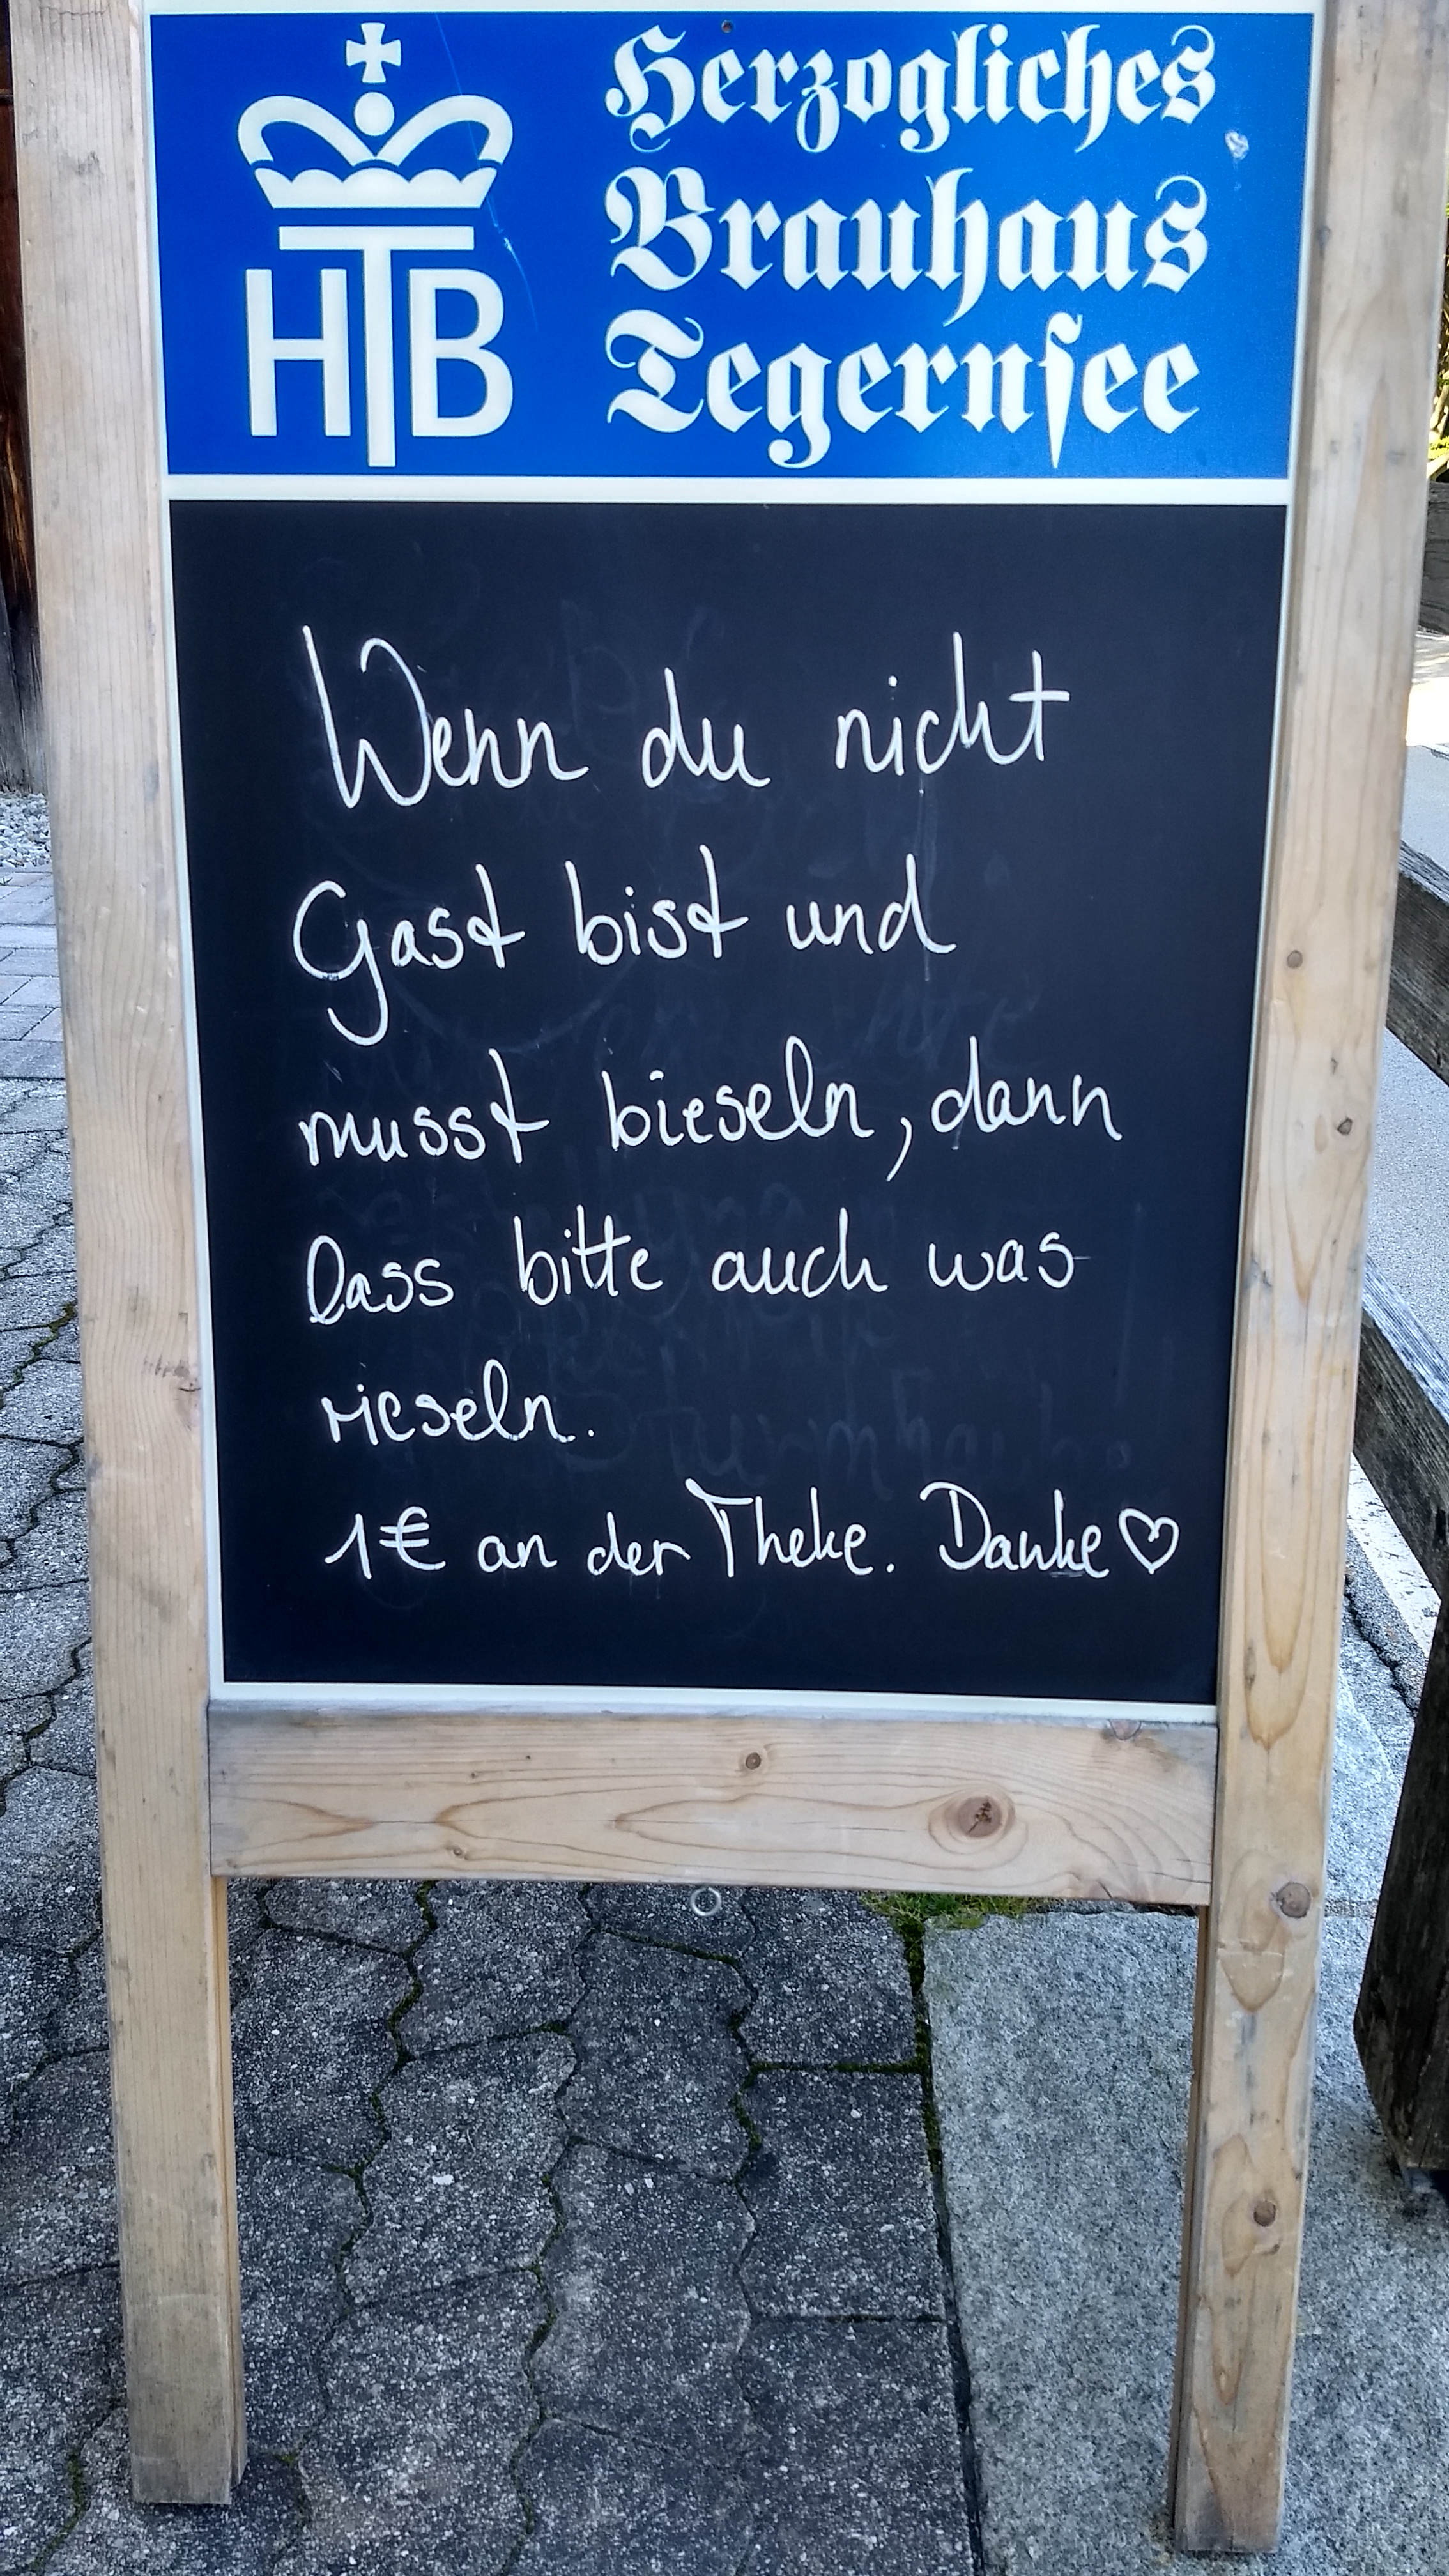 HTB
Herzogliches
Brauhaus
Tegernsee
Wenn du nicht
Gast bist und
musst bieseln, dann
lass bitte auch was
rieseln.
1€ an der Theke. Danke♡